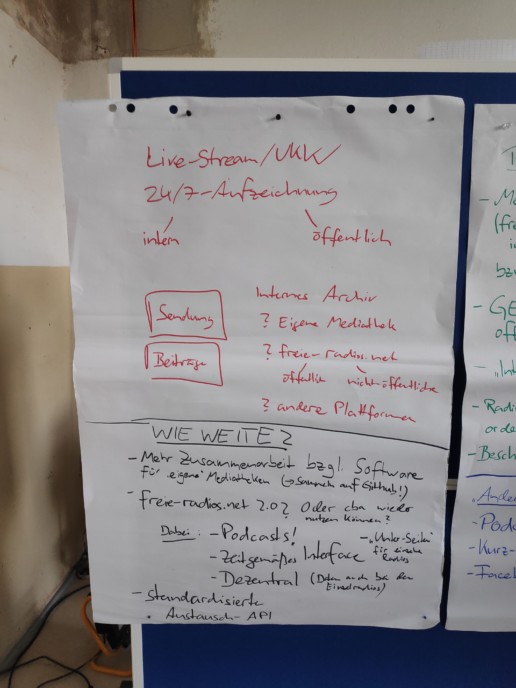 Live-Stream/UKW
24/7-Aufzeichnung
intern
öffentlich
Sendung
Beiträge
Internes Archiv
? Eigene Mediathek
? freie-radios.net
öffentlich nicht-öffentliche
? andere Plattformen
WIE WEITER?
- Mehr Zusammenarbeit bzgl. Software
für "eigene" Mediatheken (→ Sammeln auf GitHub!)
- freie-radios.net 2.0? Oder cba wieder
nutzen können?
Dabei: - Podcasts!
- Zeitgemäßes Interface
- Dezentral (Daten auch bei den
Einzelradios)
- "Unter-Seiten"
für einzelne
Radios
- standardisierte
Austausch-API
- Mo
(fre
in
bzw
- GE
off
- "In
- Radio
orde
- Besch
Ander
- Podc
- Kurz-
- Faceb